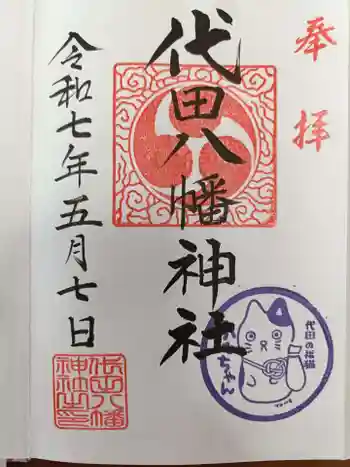 奉拝
代田八幡神社
令和七年五月七日
代田八幡
神社之印
代田の招猫
ちゃん